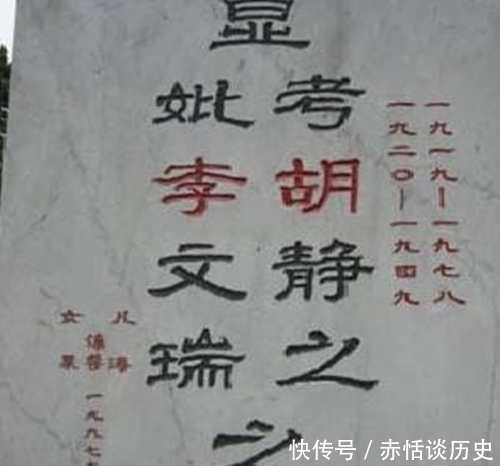 一九一九—一九七八
一九二〇—一九四九
显
考胡静之
妣李文瑞
之
儿 海
女
一九九七
快传号/赤恬谈历史